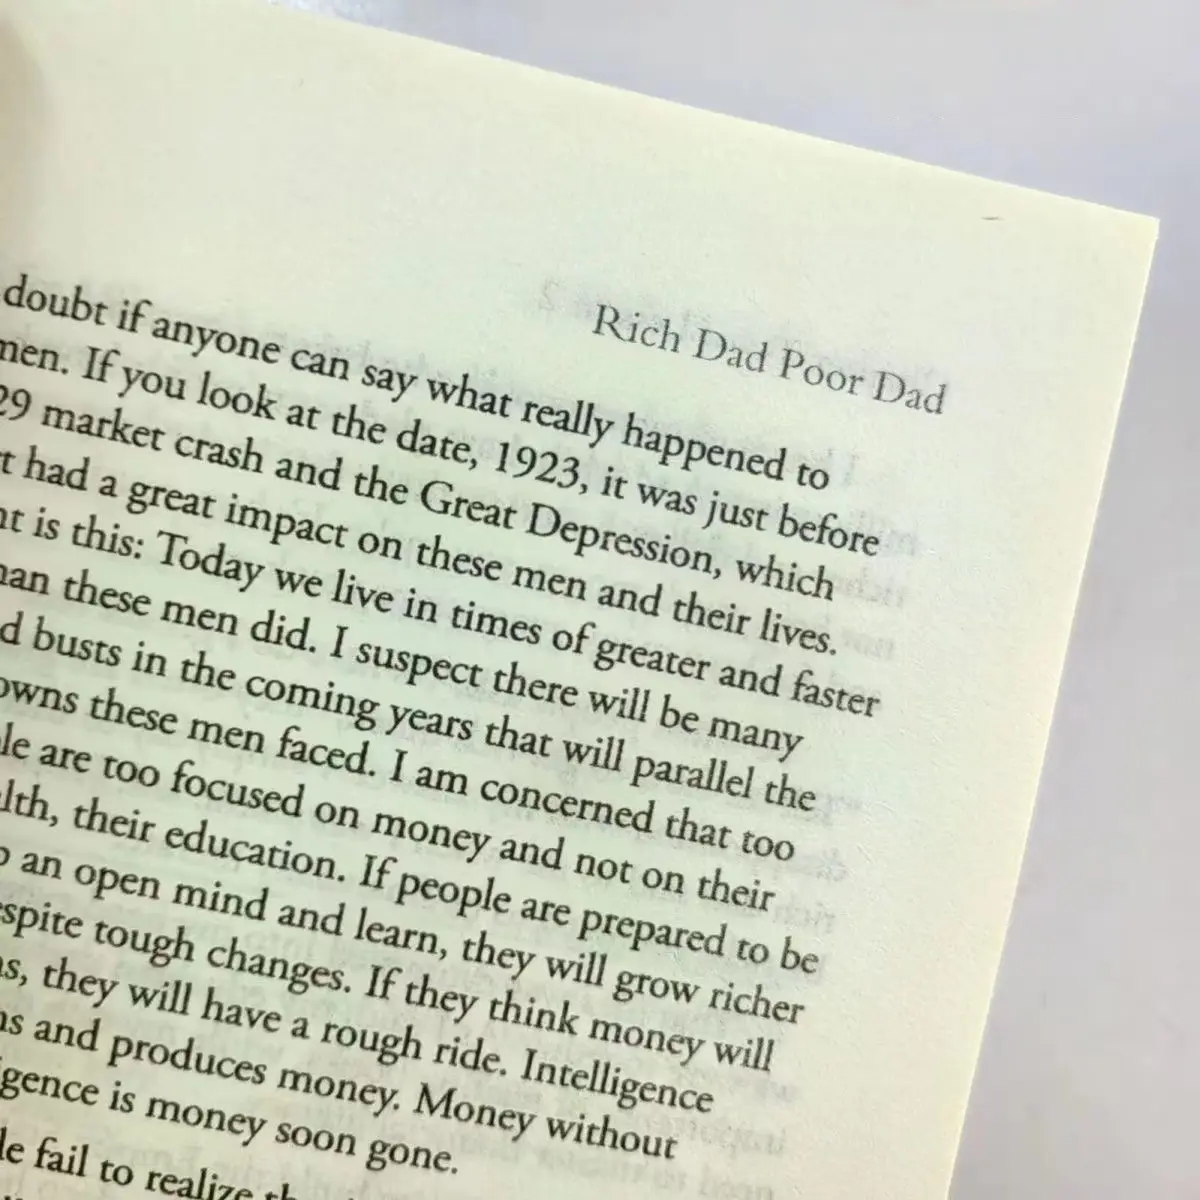 Rich Dad Poor Dad
doubt if anyone can say what really happened to
men. If you look at the date, 1923, it was just before
29 market crash and the Great Depression, which
t had a great impact on these men and their lives.
nt is this: Today we live in times of greater and faster
han these men did. I suspect there will be many
d busts in the coming years that will parallel the
owns these men faced. I am concerned that too
le are too focused on money and not on their
lth, their education. If people are prepared to be
p an open mind and learn, they will grow richer
spite tough changes. If they think money will
ns, they will have a rough ride. Intelligence
ns and produces money. Money without
gence is money soon gone.
le fail to realize th